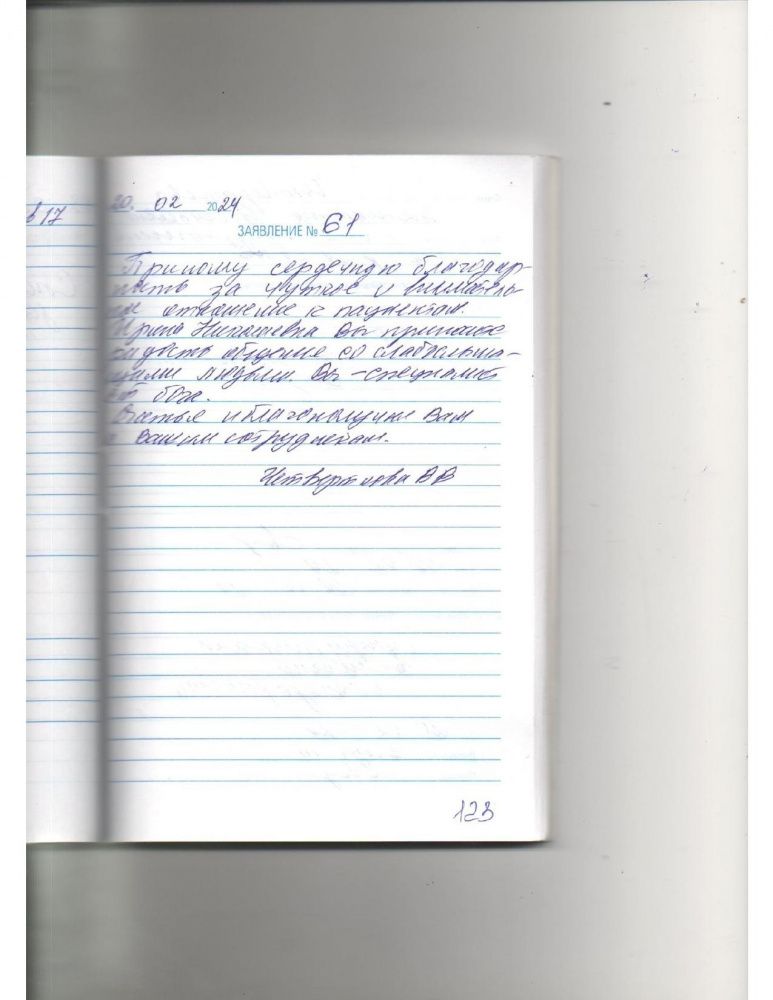 в 17
20. 02 2024
ЗАЯВЛЕНИЕ № 61
Приношу сердечную благодар-
ность за чуткое и вниматель-
ное отношение к пациентам.
Ирина Николаевна Вы приносите
радость общения со слабослыша-
щими людьми. Вы - специалист
от бога.
Счастья и благополучия Вам
и Вашим сотрудникам.
В В
123